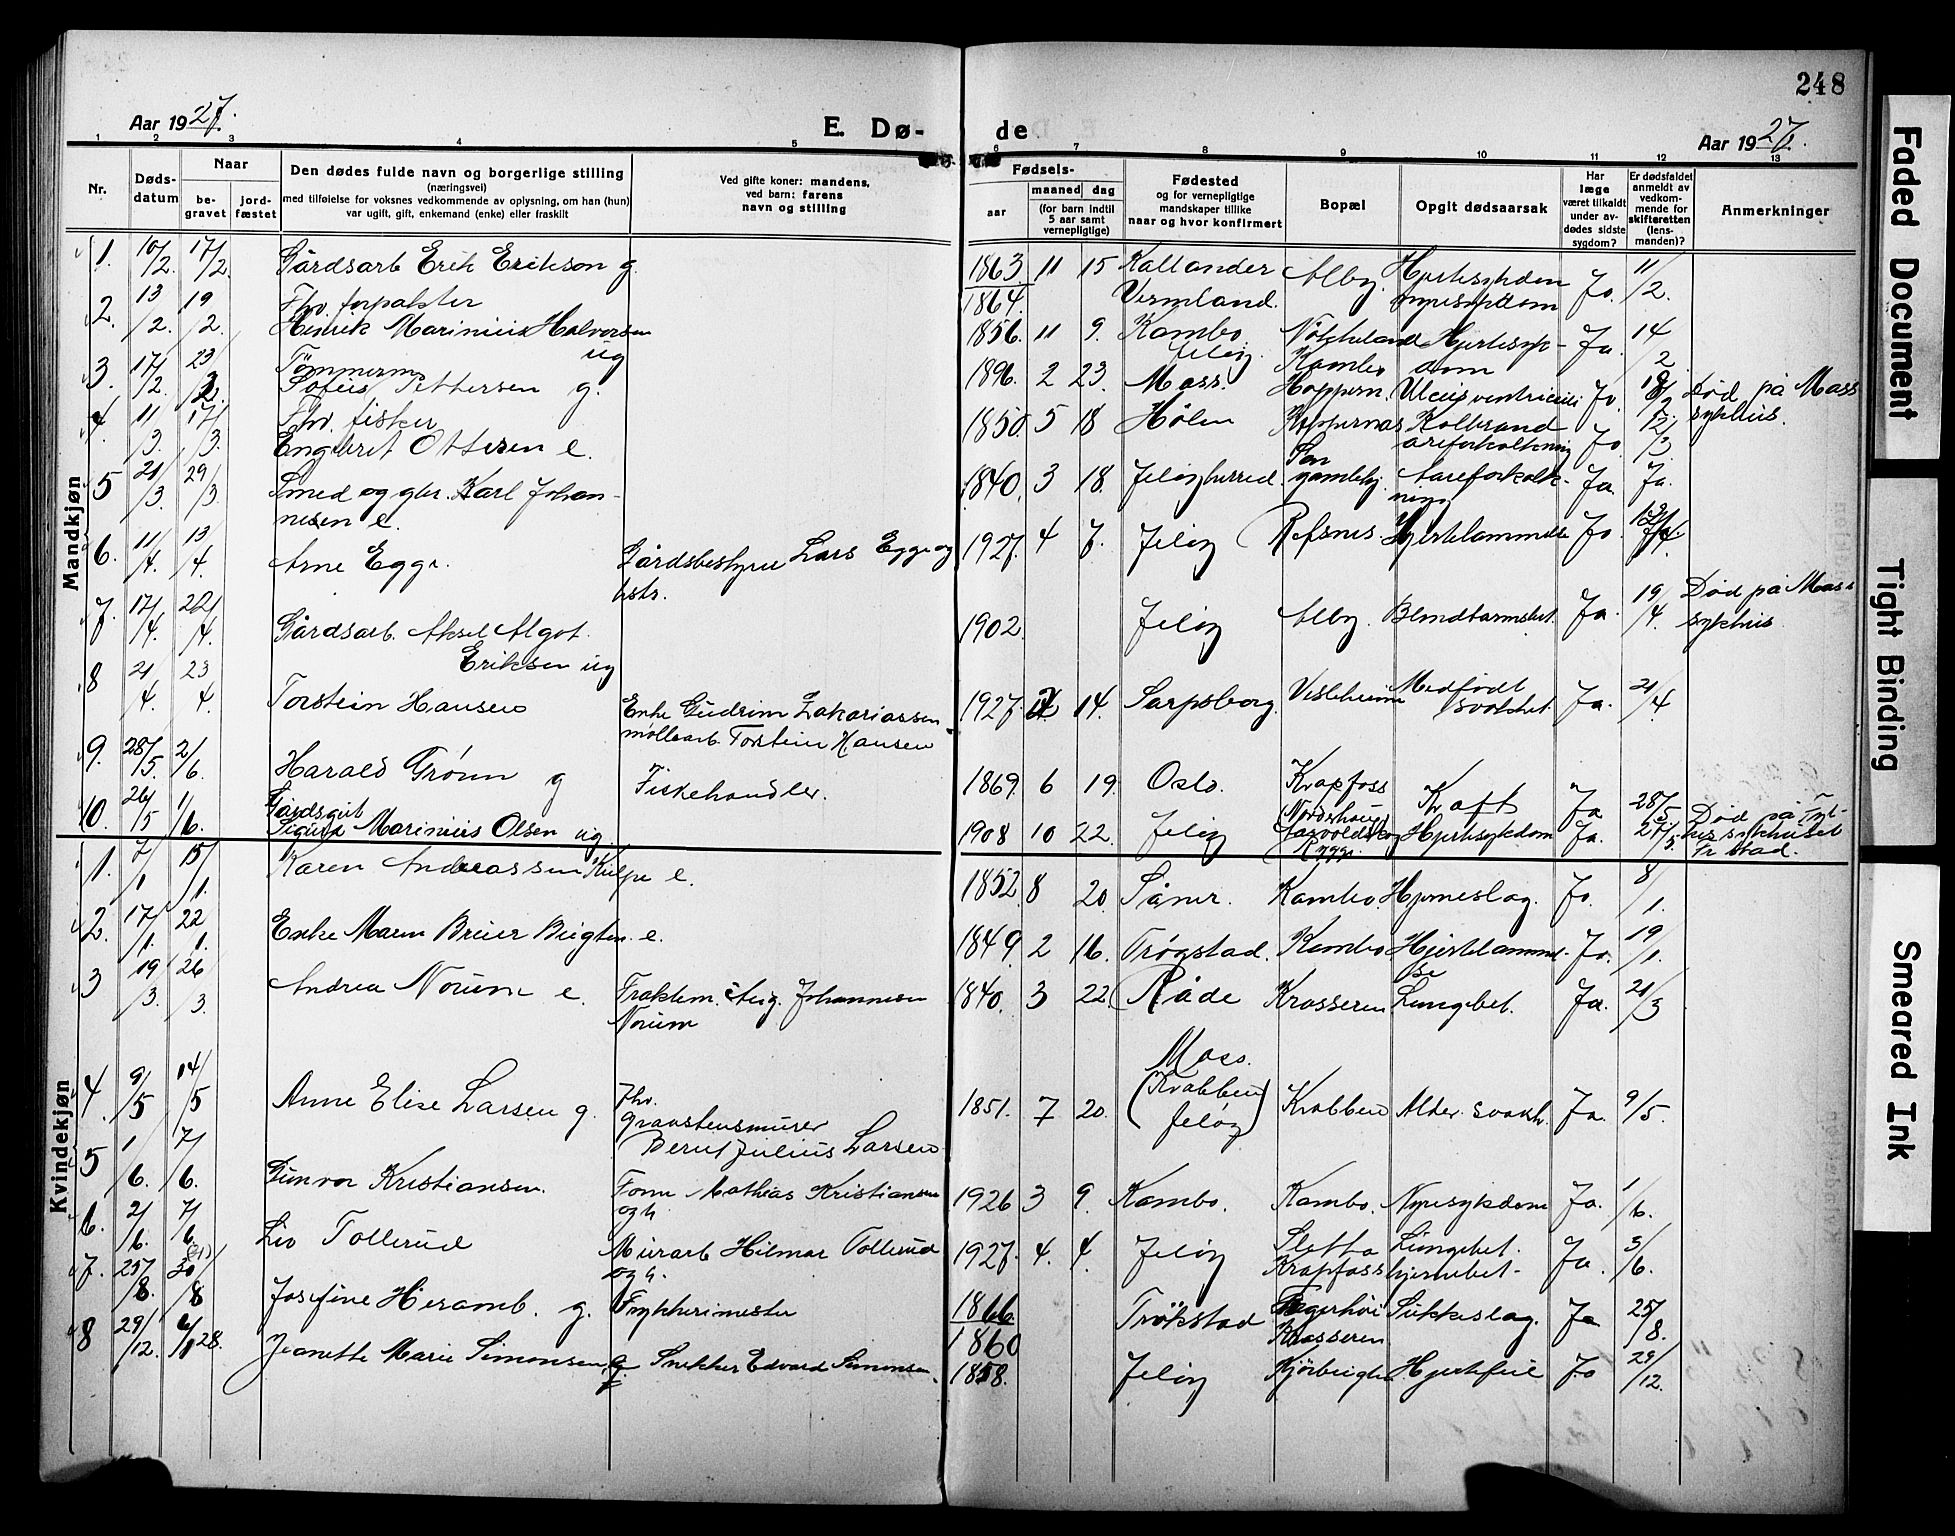 248
Aar 1927. E. Dø- de Aar 1927.
1 2 3 4 5 6 7 8 9 10 11 12 13
Nr. Døds-datum Naar be-gravet jord-fæstet Den dødes fulde navn og borgerlige stilling (næringsvei) med tilføielse for voksnes vedkommende av oplysning, om han (hun) var ugift, gift, enkemand (enke) eller fraskilt Ved gifte koner: mandens, ved barn: farens navn og stilling Fødsels- aar maaned dag (for barn indtil 5 aar samt vernepligtige) Fødested og for vernepligtige mandskaper tillike naar og hvor konfirmert Bopæl Opgit dødsaarsak Har læge været tilkaldt under av-dødes sidste sygdom? Er dødsfaldet anmeldt av vedkom-mende for skifteretten (lens-manden)? Anmerkninger
Mandkjøn
1. 10/2 17/2 Gårdsarb Erik Erikson g. 1863 11 15 Kallander Alby. Hjertesykdom Ja 11/2
1864. Vermland. nyresykdom
2. 13/2. 19/2. Fhv. forpakter
Henrik Marinius Halvorsen ug 1856. 11 9. Kambo Jeløy. Kambo Hjertesyk-dom Ja. 14/2
3. 17/2 23/2 Tømmerm
Sofus Pettersen g. 1896. 2 23. Moss. Hoppern. Ulcus ventriculi Ja. 18/2 Død på Moss sykhus.
4. 11/3. 17/3. Fhv. fisker
Engbret Ottersen e. 1850 5 18 Hølen Son Kolbrand åreforkalkning Ja 12/3
5 21/3 29/3 Smed og gbr. Karl Johan-
nesen e. 1840. 3 18. Jeløy herred gamleby. Aareforkalk-ning. Ja. Ja.
6. 11/4. 13/4. Arne Egge. Gårdsbestyrer Lars Egge og hstr. 1927. 4 7. Jeløy Refsnes. Hjertelammelse Ja.
7. 17/4. 20/4. Gårdsarb. Aksel Algot.
Eriksen ug 1902. Jeløy Alby. Blindtarmsbet. Ja. 19/4. Død på Moss sykhus.
8 21/4. 23/4. Torstein Hansen Enke Gudrun Zakariassen
møllearb. Torstein Hansen 1927. 14. Sarpsborg. Medfødt svakhet. Ja. 21/4
9. 28/5. 2/6. Harald Grønn g Fiskehandler. 1869 6 19. Oslo. Krapfoss Kraft Ja 28/5.
10. 26/5 1/6. Gårdsgut
Sigurd Marinius Olsen ug. 1908 10 22. Jeløy Rygge. Hjertesykdom Ja. 27/5. Død på Fyl-kessykehuset Fr stad.
Kvindekjøn
1. 7/1 15/1. Karen Andreassen Kulpe e. 1852. 8 20. Såner. Kambo. Hjerneslag. Ja. 8/1.
2. 17/1. 22/1. Enke Maren Breier Bugten. e. 1849. 2 16. Trøgstad. Kambo Hjertelammel-se Ja. 19/1.
3 19/3. 26/3 Andrea Norum e. Traktem. Aug. Johannesen
Norum 1840. 3 22. Råde Krosseren Lungebet. Ja. 21/3
4. 9/5 14/5 Anne Elise Larsen g. Fhv.
graastensmurer
Bernt Julius Larsen 1851. 7 20. Moss.
(Krabben
Jeløy) Krabben Alder. svakh. Ja. 9/5
5 1/6. 7/6. Gunvor Kristiansen. Form Mathias Kristiansen
og h. 1926 3 9. Kambo. Kambo. Nyresykdom Ja. 1/6.
6. 2/6. 7/6. Liv Tollerud Murarb Hilmar Tollerud
og h. 1927. 4. 4. Jeløy Sletta
Krapfoss Lungebet.
hjernebet- Ja. 3/6.
7. 25/8. 30/8 Josefine Heramb. g. Trykkerimester 1866
1860 Trøkstad Fagerhøi
Krosseren Sukkeslag. Ja 25/8.
8 29/12. 6/1 28. Jeanette Marie Simonsen g Snekker Edvard Simonsen. 1858. Jeløy Kjørbugten Hjertefeil Ja 29/12.
Faded Document
Tight Binding
Smeared Ink